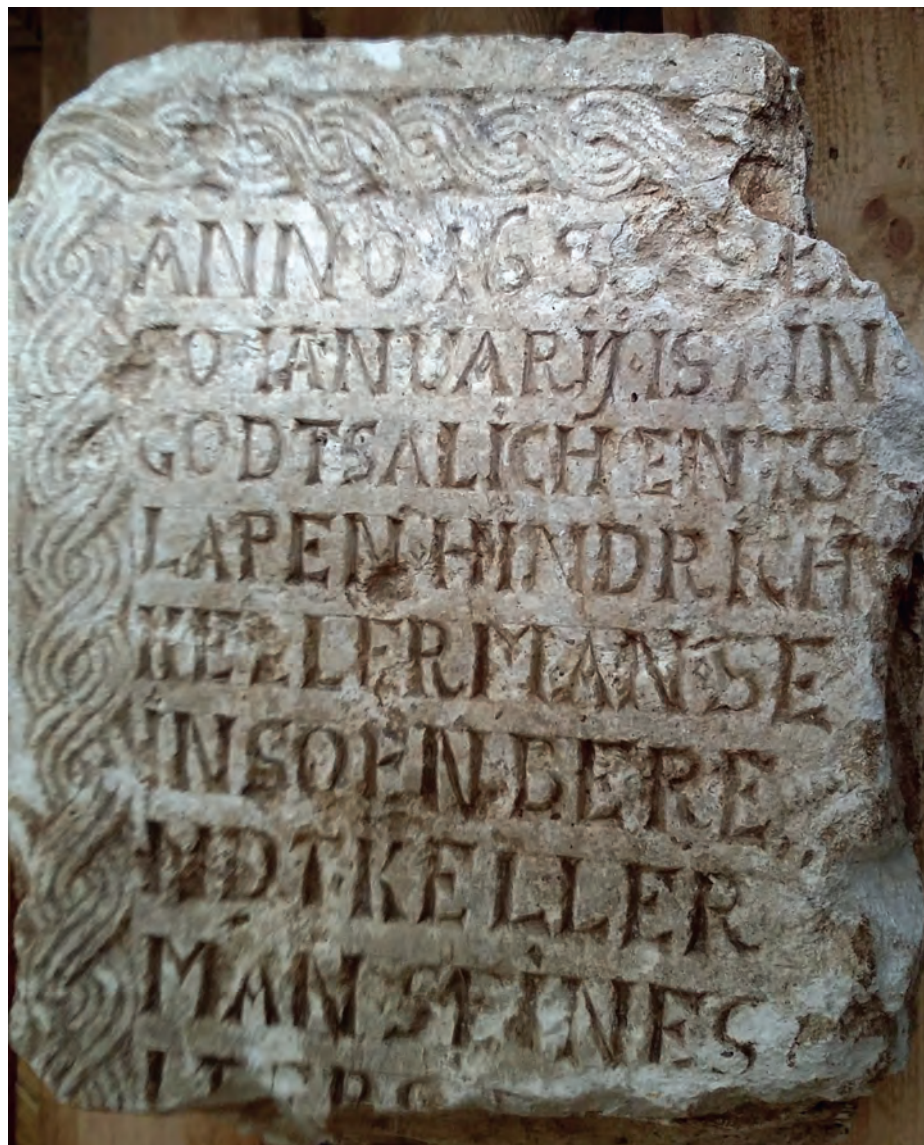 ANNO
IANUARIJ·IS·IN
GODTSALICHENTS
LAPEN·HINDRICH
KELLERMAN·SE
INSOEN·BERE
NDT·KELLER
MAN·SEINES